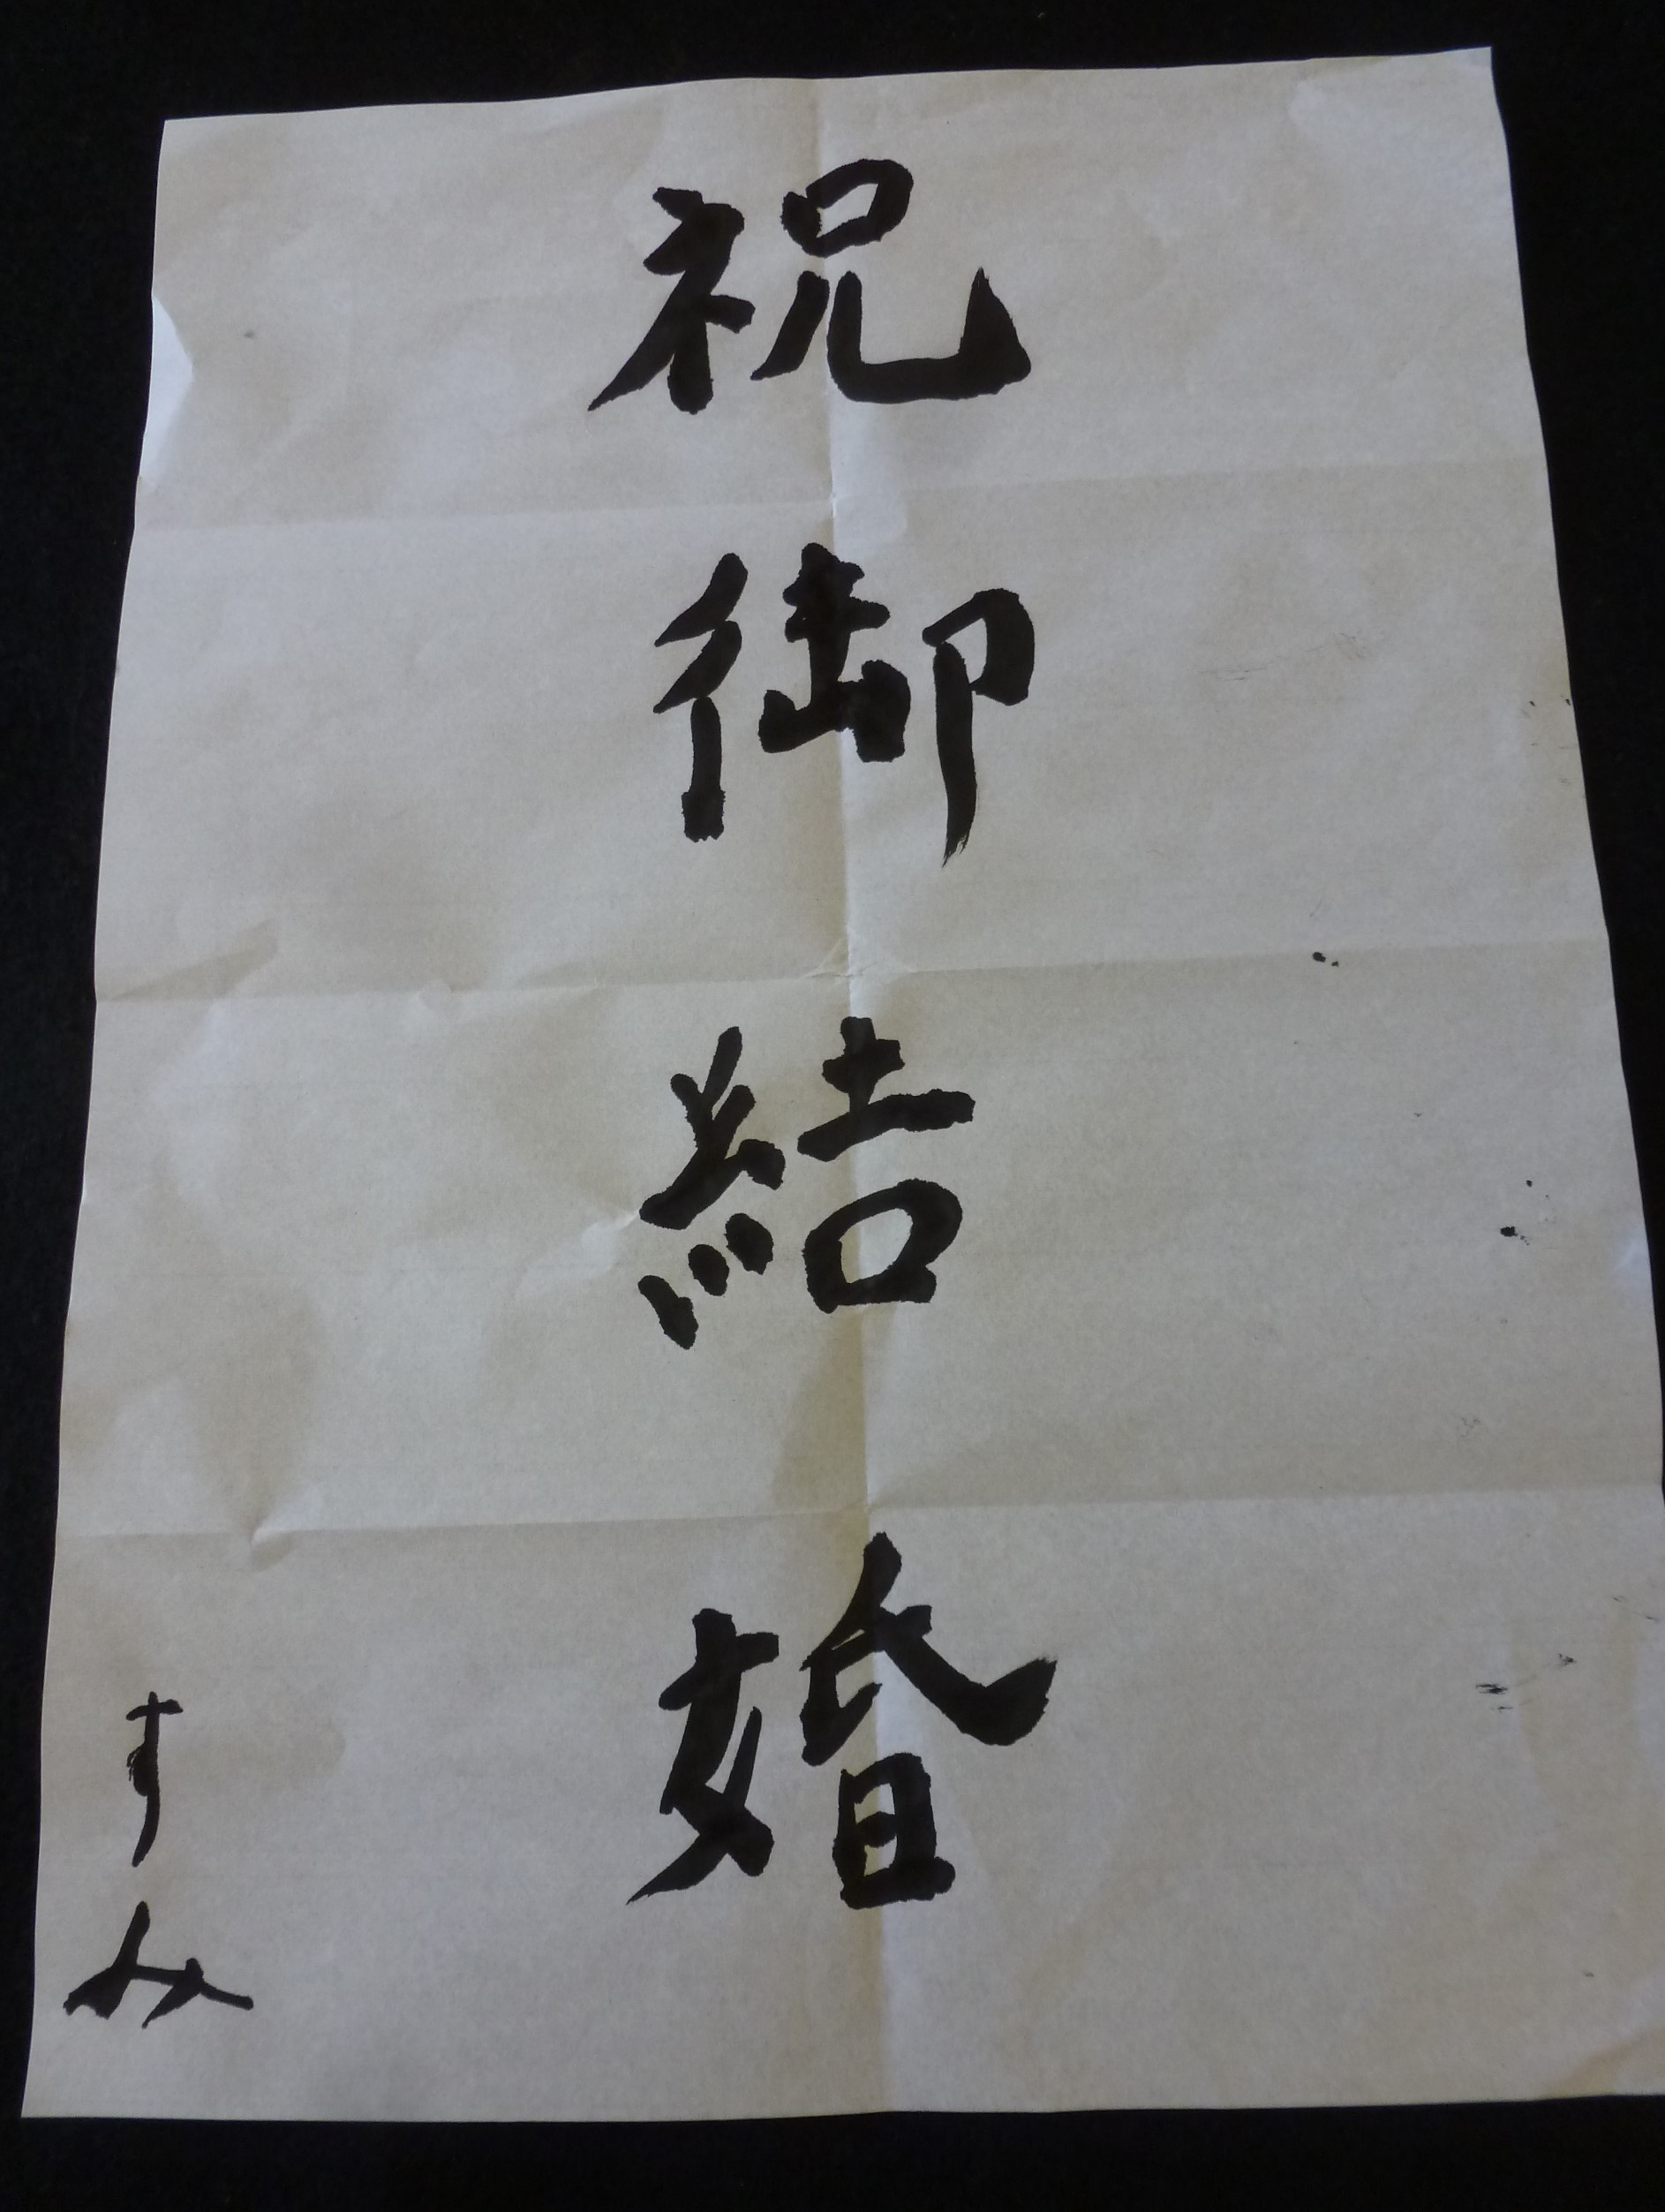 祝御結婚
すみ